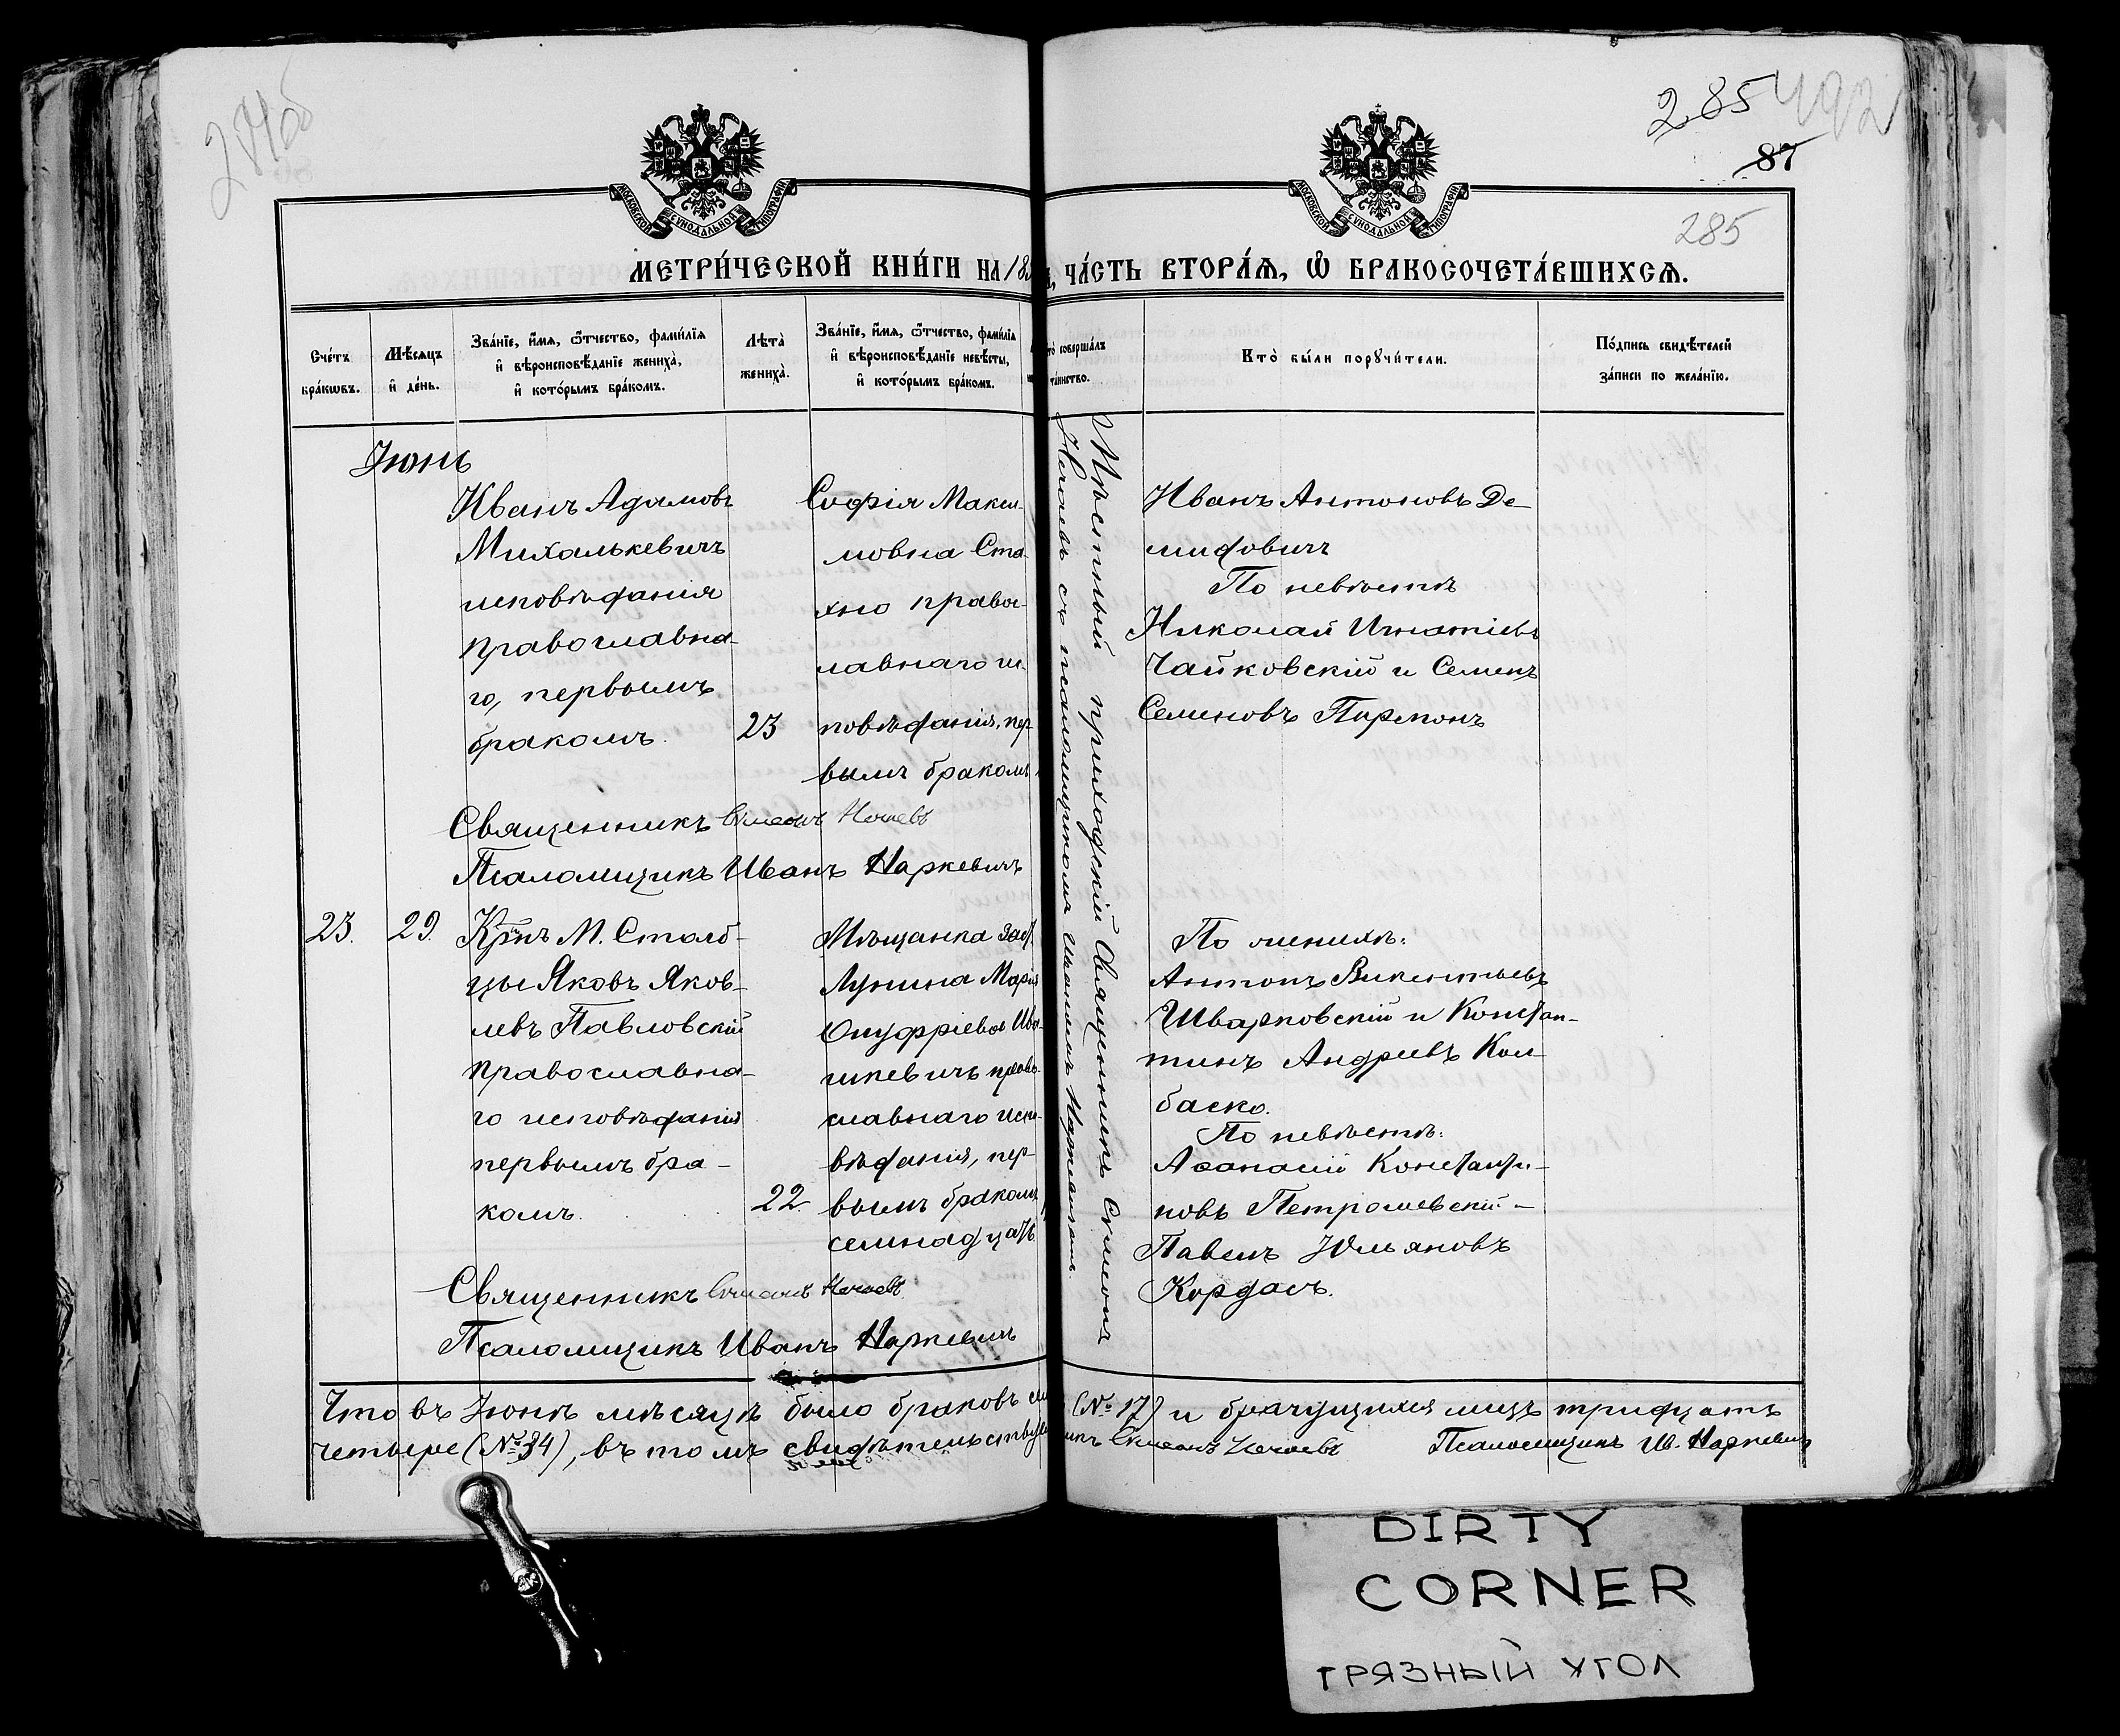 285
492
87
285
МОСКОВСКОЙ СУНОДАЛЬНОЙ ТИПОГРАФІИ
МОСКОВСКОЙ СУНОДАЛЬНОЙ ТИПОГРАФІИ
МЕТРИ́ЧЕСКОЙ КНИ́ГИ НА 18
ЧА́СТЬ ВТОРА́Ѧ, Ѽ БРАКОСОЧЕТА́ВШИХСѦ.
Сче́тъ бра́кѡвъ.
Мѣ́сѧцъ и҆ де́нь.
Зва́нїе, и҆́мѧ, ѻ҆́тчество, фами́лїѧ
и҆ вѣроисповѣ́данїе жениха̀,
и҆ кото́рымъ бра́комъ.
Лѣта̀ жениха̀.
Зва́нїе, и҆́мѧ, ѻ҆́тчество, фами́лїѧ
и҆ вѣроисповѣ́данїе невѣ́сты,
и҆ кото́рымъ бра́комъ.
совершалъ
таинство.
Кто̀ бы́ли порꙋчи́тели.
По́дпись свидѣ́телей
за́писи по жела́нїю.
Іюнь
Иванъ Адамовъ
Михалькевичъ
исповѣданія
православна-
го, первымъ
бракомъ.
23
Софія Макси-
мовна Ста-
хно право-
лавнаго ис-
повѣданія, пер-
вымъ бракомъ
Иванъ Антоновъ Де-
мидовичъ
По невѣстѣ
Николай Игнатіевъ
Чайковскій и Семенъ
Семеновъ Пармонъ
Священникъ Симеонъ Нечаевъ
Псаломщикъ Иванъ Наркевичъ
Мѣстный приходскій Священникъ Симеонъ
Нечаевъ съ псаломщикомъ Иваномъ Наркевичемъ.
23.
29.
Крнъ М. Столб-
цы Яковъ Яков-
левъ Павловскій
православна-
го исповѣданія
первымъ бра-
комъ.
22.
Мѣщанка заш.
Лунина Марія
Онуфріева Ива-
шкевичъ право-
славнаго испо-
вѣданія, пер-
вымъ бракомъ
семнадцать
По женихѣ:
Антонъ Викентьевъ
Шварковскій и Констан-
тинъ Андреевъ Кол-
баско.
По невѣстѣ:
Аѳанасій Константи-
новъ Петрашевскій –
Павелъ Юльяновъ
Кордасъ.
Священникъ Симеонъ Нечаевъ
Псаломщикъ Иванъ Наркевичъ
Что въ Іюнѣ мѣсяцѣ было браковъ сем (№ 17) и брачущихся лицъ тридцать
четыре (№ 34), въ томъ свидѣтельствуемъ Симеонъ Нечаевъ Псаломщикъ Ив. Наркевичъ
DIRTY
CORNER
ГРЯЗНЫЙ УГОЛ